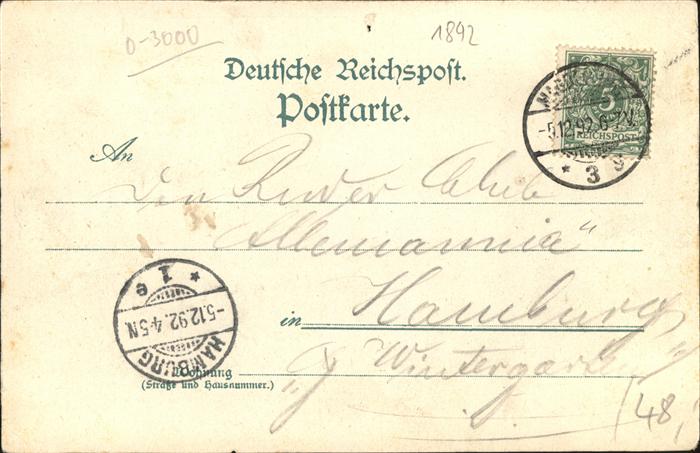 D-3000
1892
Deutsche Reichspost.
Postkarte.
5
REICHSPOST
-5.12.92. 6-7V.
* 3 s
An
Den Ruder Club
Allemannia"
in Hamburg
Wintergarten"
Wohnung
(Straße und Hausnummer.)
HAMBURG
-5.12.92.4-5N
* 1 e
48,